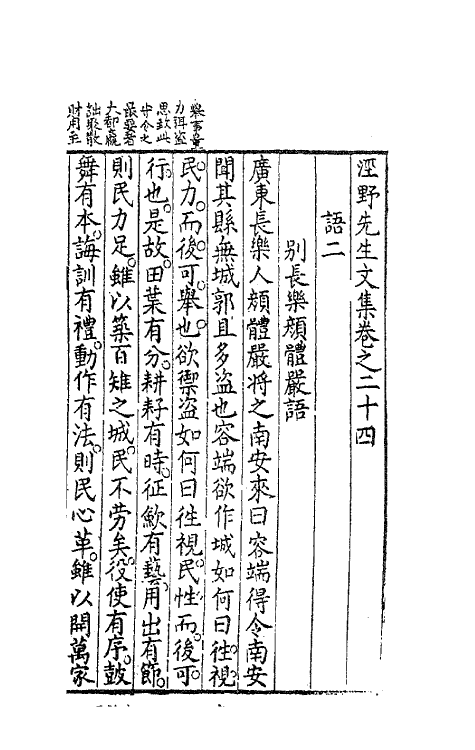 涇野先生文集卷之二十四
語二
别長樂顔體嚴語
廣東長樂人顔體嚴将之南安來曰容端得令南安
聞其縣無城郭且多盗也容端欲作城如何曰徃視
民力而後可舉也欲禦盗如何曰徃視民性而後可
行也是故田葉有分耕耔有時征歛有藝用出有節
則民力足雖以築百雉之城民不劳矣役使有序鼓
舞有本誨訓有禮動作有法則民心革雖以開萬家
力弭盗
思故此
守令之
最要者
大都龐
詘聚散
財用至